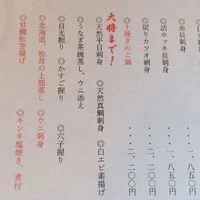 ・赤貝刺身
・活ホッキ貝刺身 ・・一、八五〇円
・戻りカツオ刺身 ・・一、八五〇円
・十種きのこ鍋 ・・二、二〇〇円
大将まで！
・天然平目刺身 ・天然真鯛刺身
・うなぎ茶碗蒸し、ウニ添え ・白エビ素揚げ
・目光握り ・かすご握り ・穴子握り
・北海道 松茸の土瓶蒸し ・ウニ刺身
・甘鯛松笠揚げ ・キンキ塩焼き、煮付